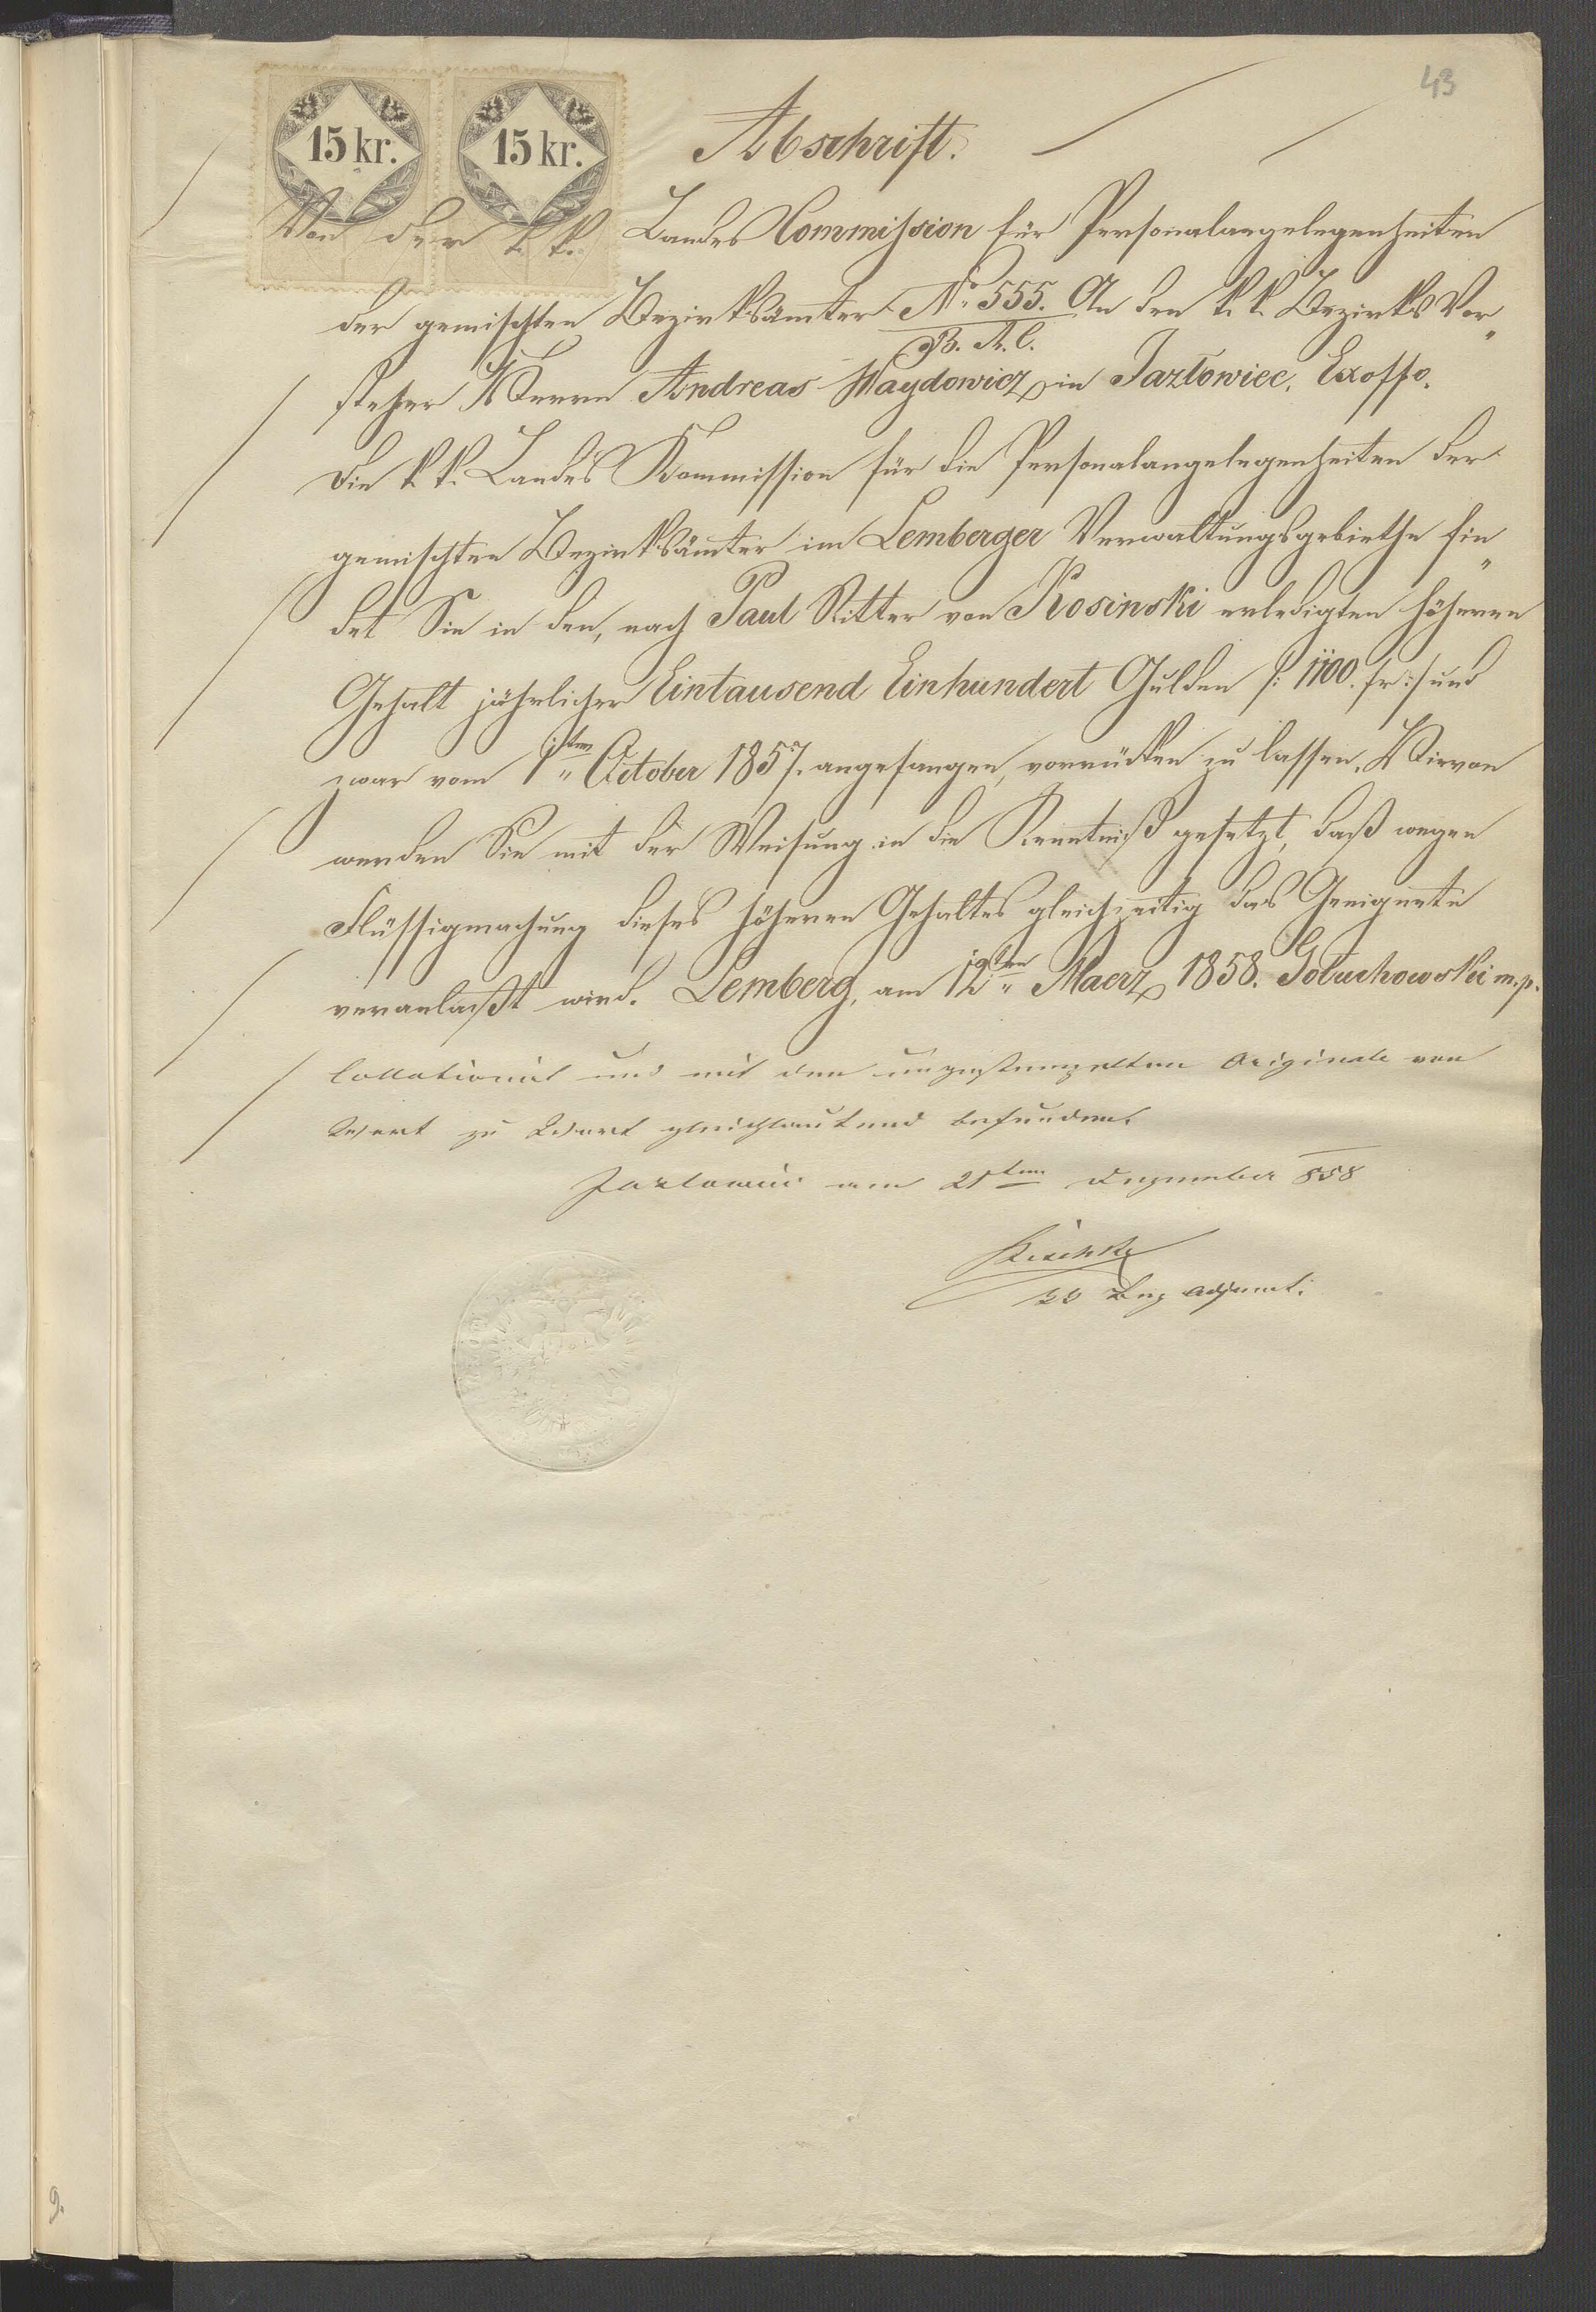 43
15 kr. 15 kr.
Abschrift.
Von der k. k. Landes Commission für Personalangelegenheiten
der gemischten Bezirksämter No 555. An den k. k. Bezirks Vor„
B. A. C.
steher Herrn Andreas Haydowicz in Jazłowiec, Exoffo.
Die k. k. Landes Kommission für die Personalangelegenheiten der
gemischten Bezirksämter im Lemberger Verwaltungsgebiethe fin„
det Sie in den, nach Paul Ritter von Kosinski erledigten höheren
Gehalt jährlicher Eintausend Einhundert Gulden /: 1100. fr :/ und
zwar vom 1ten October 1857. angefangen, vorrücken zu lassen. Hievon
werden Sie mit der Weisung in die Kenntniß gesetzt, daß wegen
Flüssigmachung dieses höheren Gehaltes gleichzeitig das Geeignete
veranlaßt wird. Lemberg, am 12ten Maerz 1858. Gołuchowski m.p.
Collationirt und mit dem ungestempelten Originale von
Wort zu Wort gleichlautend befunden.
Jazlowiec am 21ten Dezember 858
kk Bez Adjunct.
9.